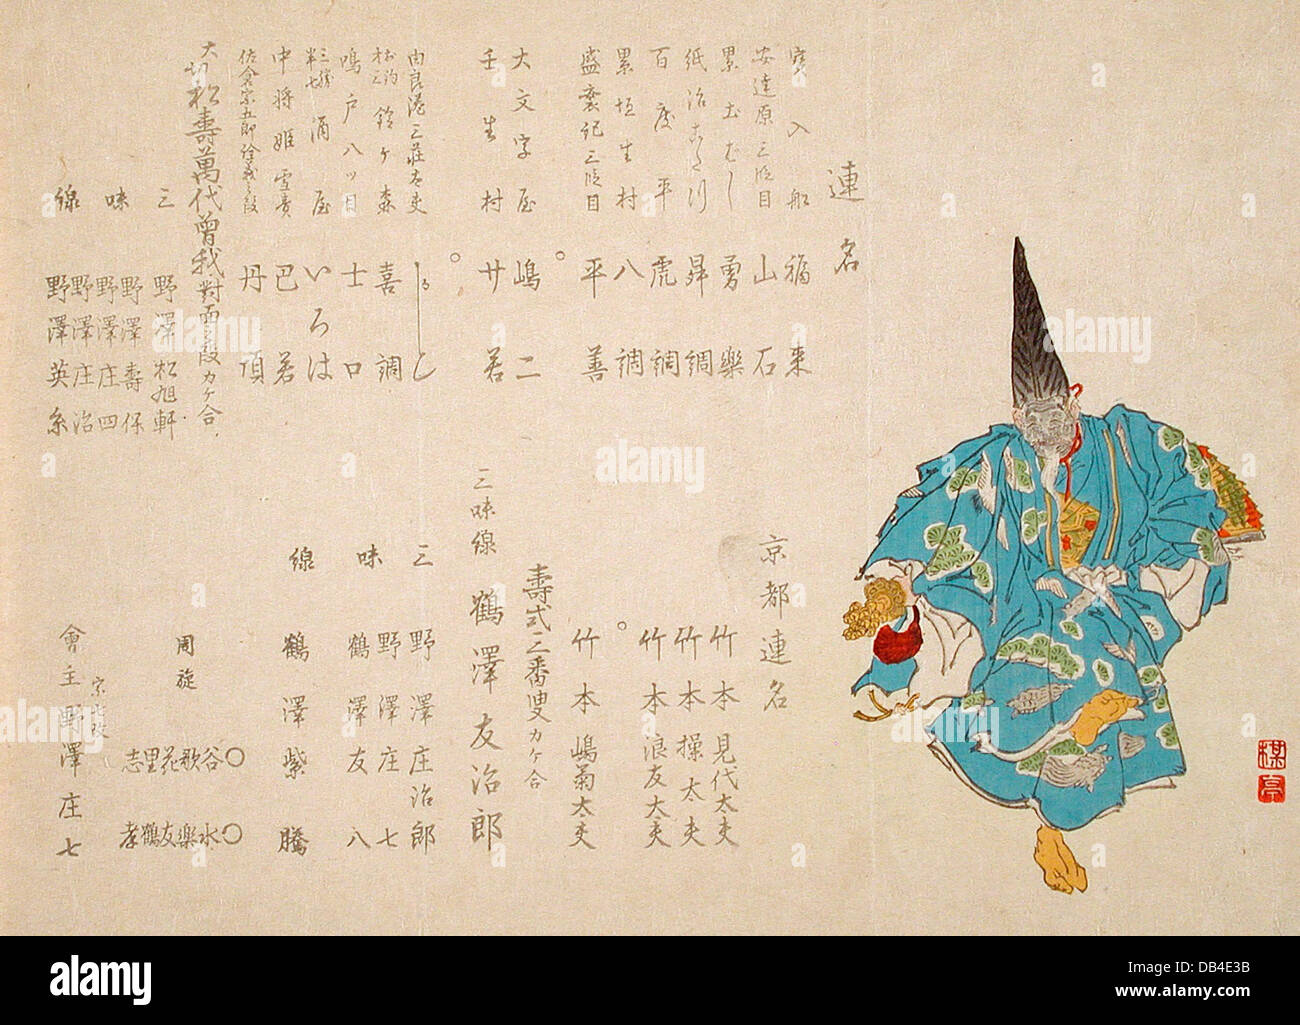 連名
寳入船 福来
安達原三段目 山石
累土むし 勇楽
紙治 川 昇調
百度平 虎調
累垣生村 八調
盛衰記三段目 平善
大文字屋 嶋二
壬生村 廿若
由良湊三荘太夫
鈴ヶ森 喜調
鳴戸八ッ目 士口
三勝半七 酒屋 いろは
中将姫雪責 巴若
佐倉宗五郎 段 丹頂
大切 松壽萬代曽我 對面之段 カケ合
三味線
野澤松旭軒
野澤壽保
野澤庄四
野澤庄治
野澤英糸
京都連名
竹本見代太夫
竹本操太夫
竹本浪友太夫
竹本嶋菊太夫
壽式三番叟カケ合
三味線 鶴澤友治郎
三味線
野澤庄治郎
野澤庄七
鶴澤友八
鶴澤紫騰
周旋
谷水
歌楽
花友
里鶴
志孝
會主 野澤庄七
楳亭
alamy
Image ID: DB4E3B
www.alamy.com